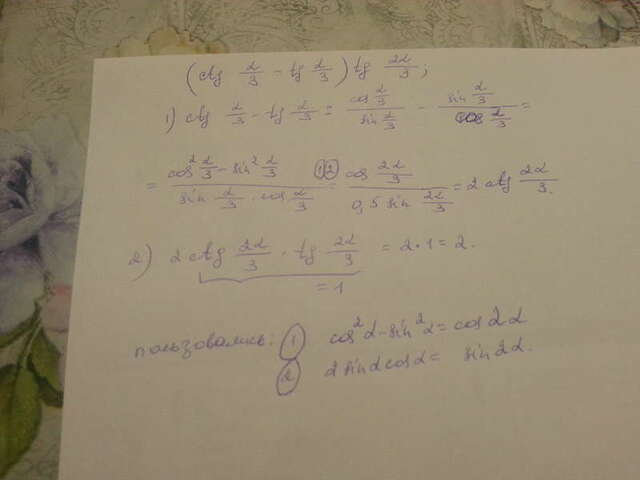 (ctg α/3 - tg α/3) tg 2α/3;
1) ctg α/3 - tg α/3 = cos α/3 / sin α/3 - sin α/3 / cos α/3 =
= cos² α/3 - sin² α/3 / sin α/3 · cos α/3 =①② cos 2α/3 / 0,5 sin 2α/3 = 2 ctg 2α/3.
2) 2 ctg 2α/3 · tg 2α/3 = 2·1 = 2.
= 1
пользовались: ① cos²α - sin²α = cos 2α
② 2 sinα cosα = sin 2α.